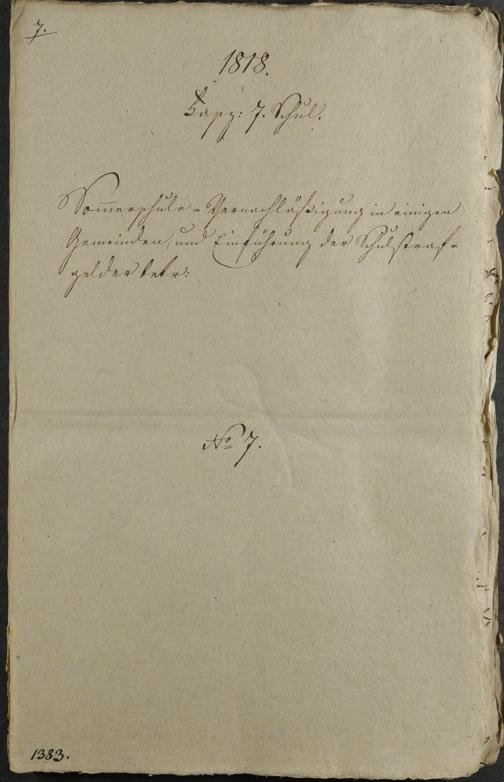 7.
1818.
Kapp: 7. Schul.
Sommerschule - Vernachläßigung in einigen
Gemeinden, und Einführung der Schulstraf-
gelder betr:
No 7.
1383.